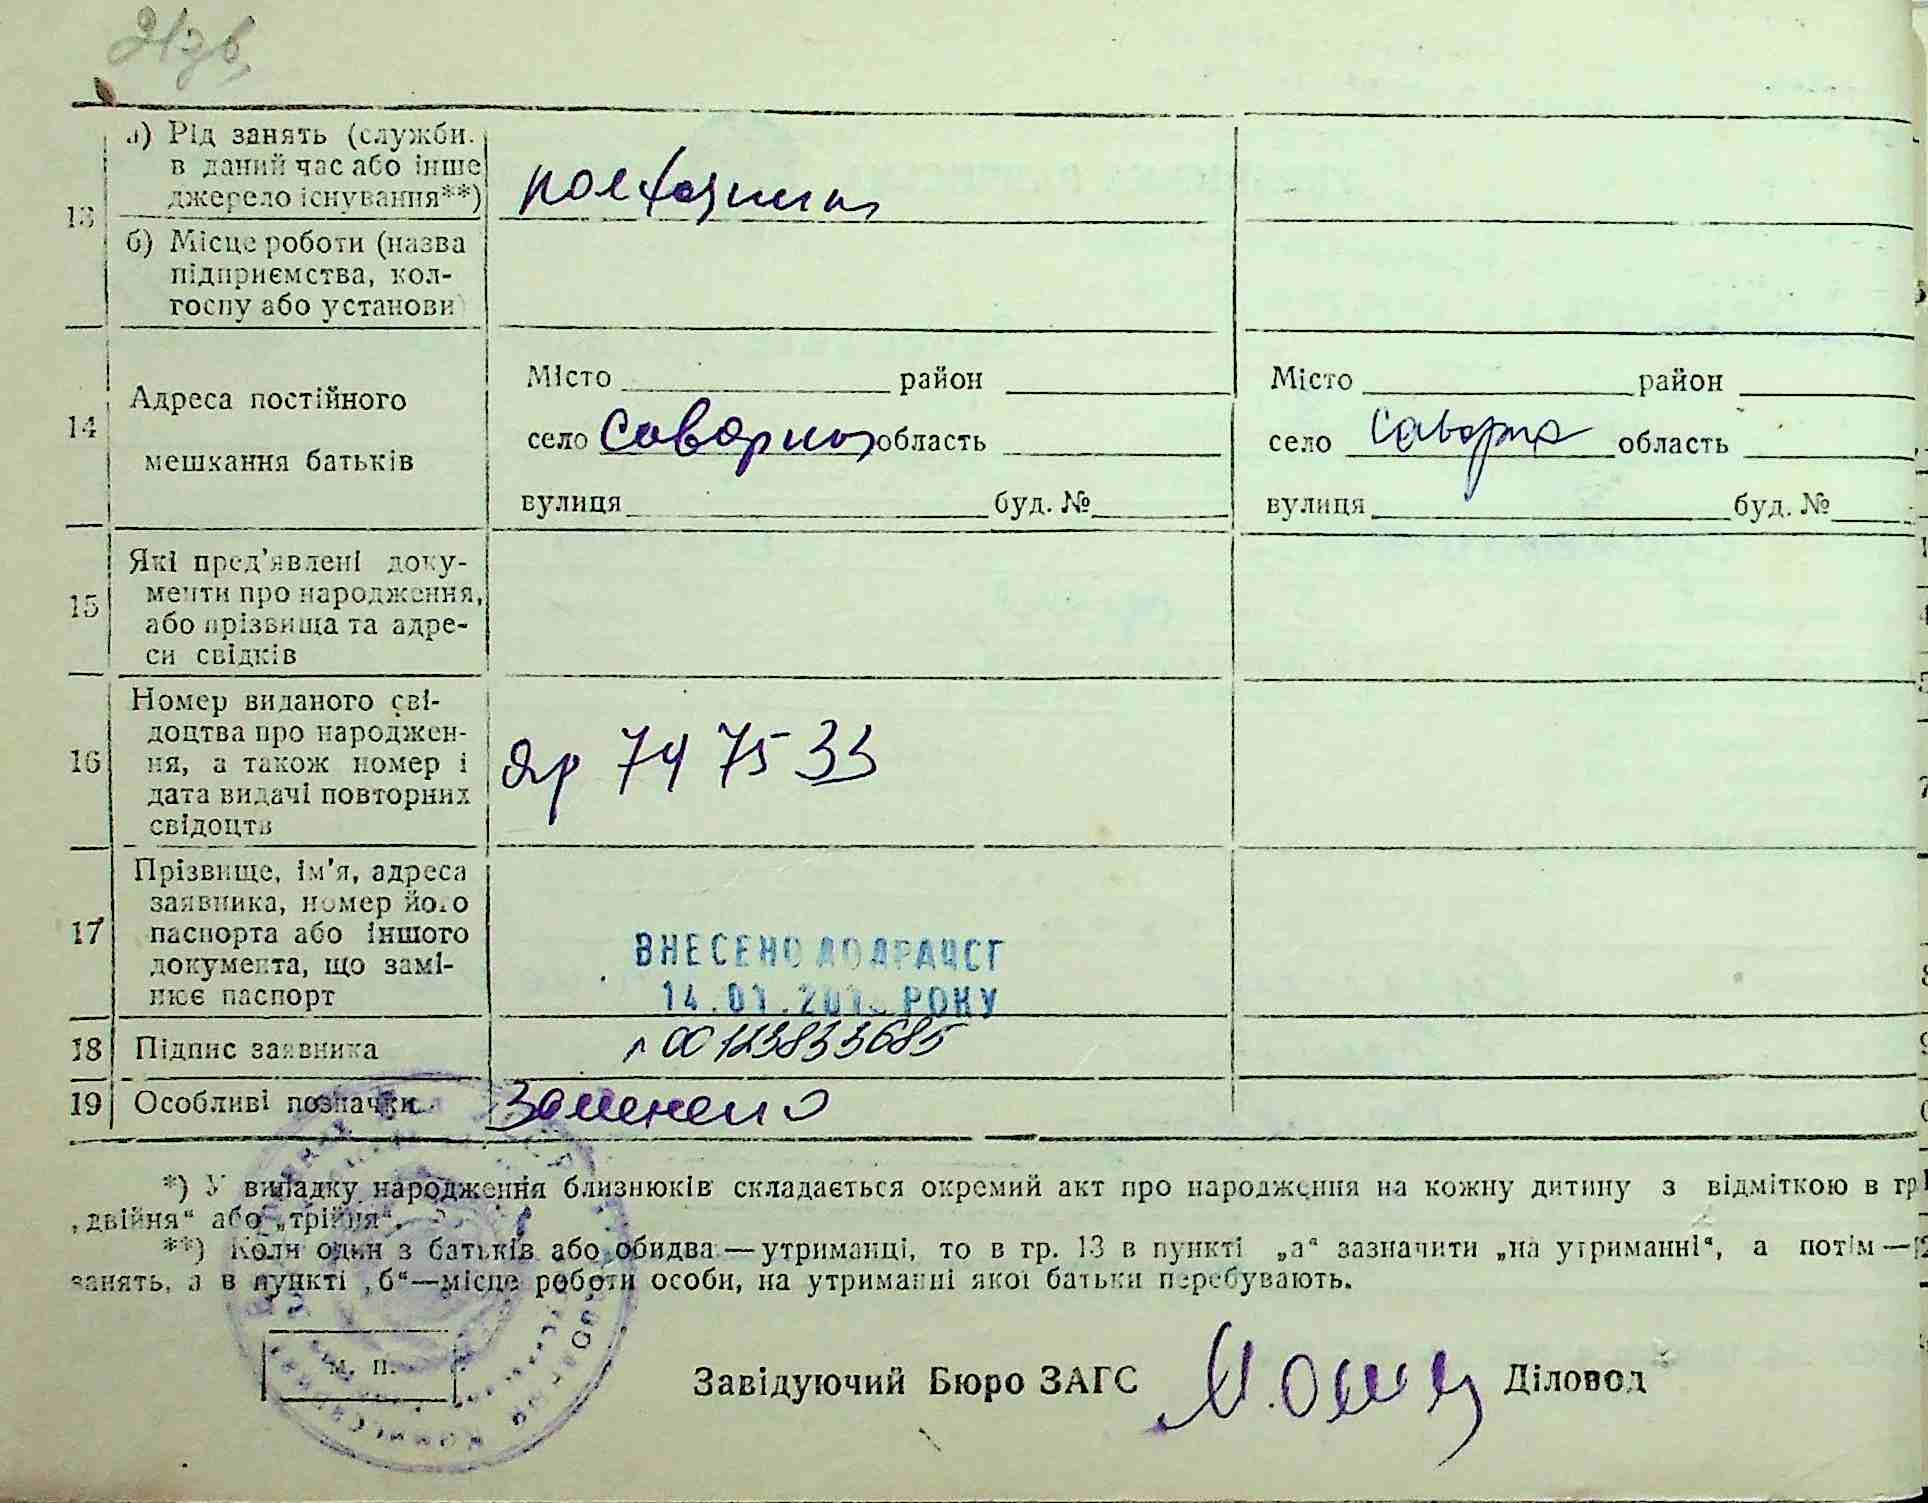 13
а) Рід занять (служби
в даний час або інше
джерело існування**)
колхозник
б) Місце роботи (назва
підприємства, кол-
госпу або установи)
14
Адреса постійного
мешкання батьків
Місто район
село Саварка область
вулиця буд. №
Місто район
село Саварка область
вулиця буд. №
15
Які пред'явлені доку-
менти про народження,
або прізвища та адре-
си свідків
16
Номер виданого сві-
доцтва про народжен-
ня, а також номер і
дата видачі повторних
свідоцтв
яр 747533
17
Прізвище, ім'я, адреса
заявника, номер його
паспорта або іншого
документа, що замі-
нює паспорт
ВНЕСЕНО ДО ДРАЦСГ
14.01. РОКУ
18
Підпис заявника
00123833685
19
Особливі позначки
Заменено
*) У випадку народження близнюків складається окремий акт про народження на кожну дитину з відміткою в гр
„двійня“ або „трійня“.
**) Коли один з батьків або обидва — утриманці, то в гр. 13 в пункті „а“ зазначити „на утриманні“, а потім —
занять, а в пункті „б“—місце роботи особи, на утриманні якої батьки перебувають.
м. п.
Завідуючий Бюро ЗАГС Діловод